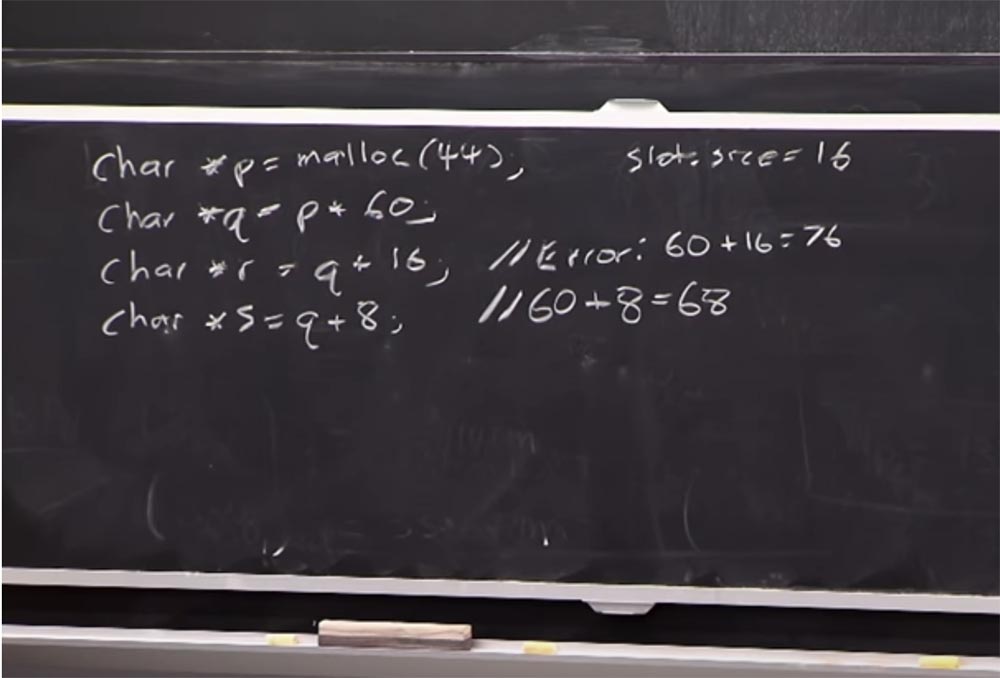 char *p = malloc(44); slot.size = 16
char *q = p + 60;
char *r = q + 16; //Error: 60+16=76
char *s = q+8; //60+8=68